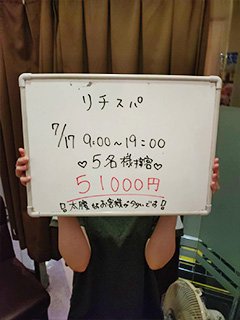 リチスパ
7/17 9:00~19:00
♡5名様接客♡
51000円
!!本厚木はお客様が多いです!!